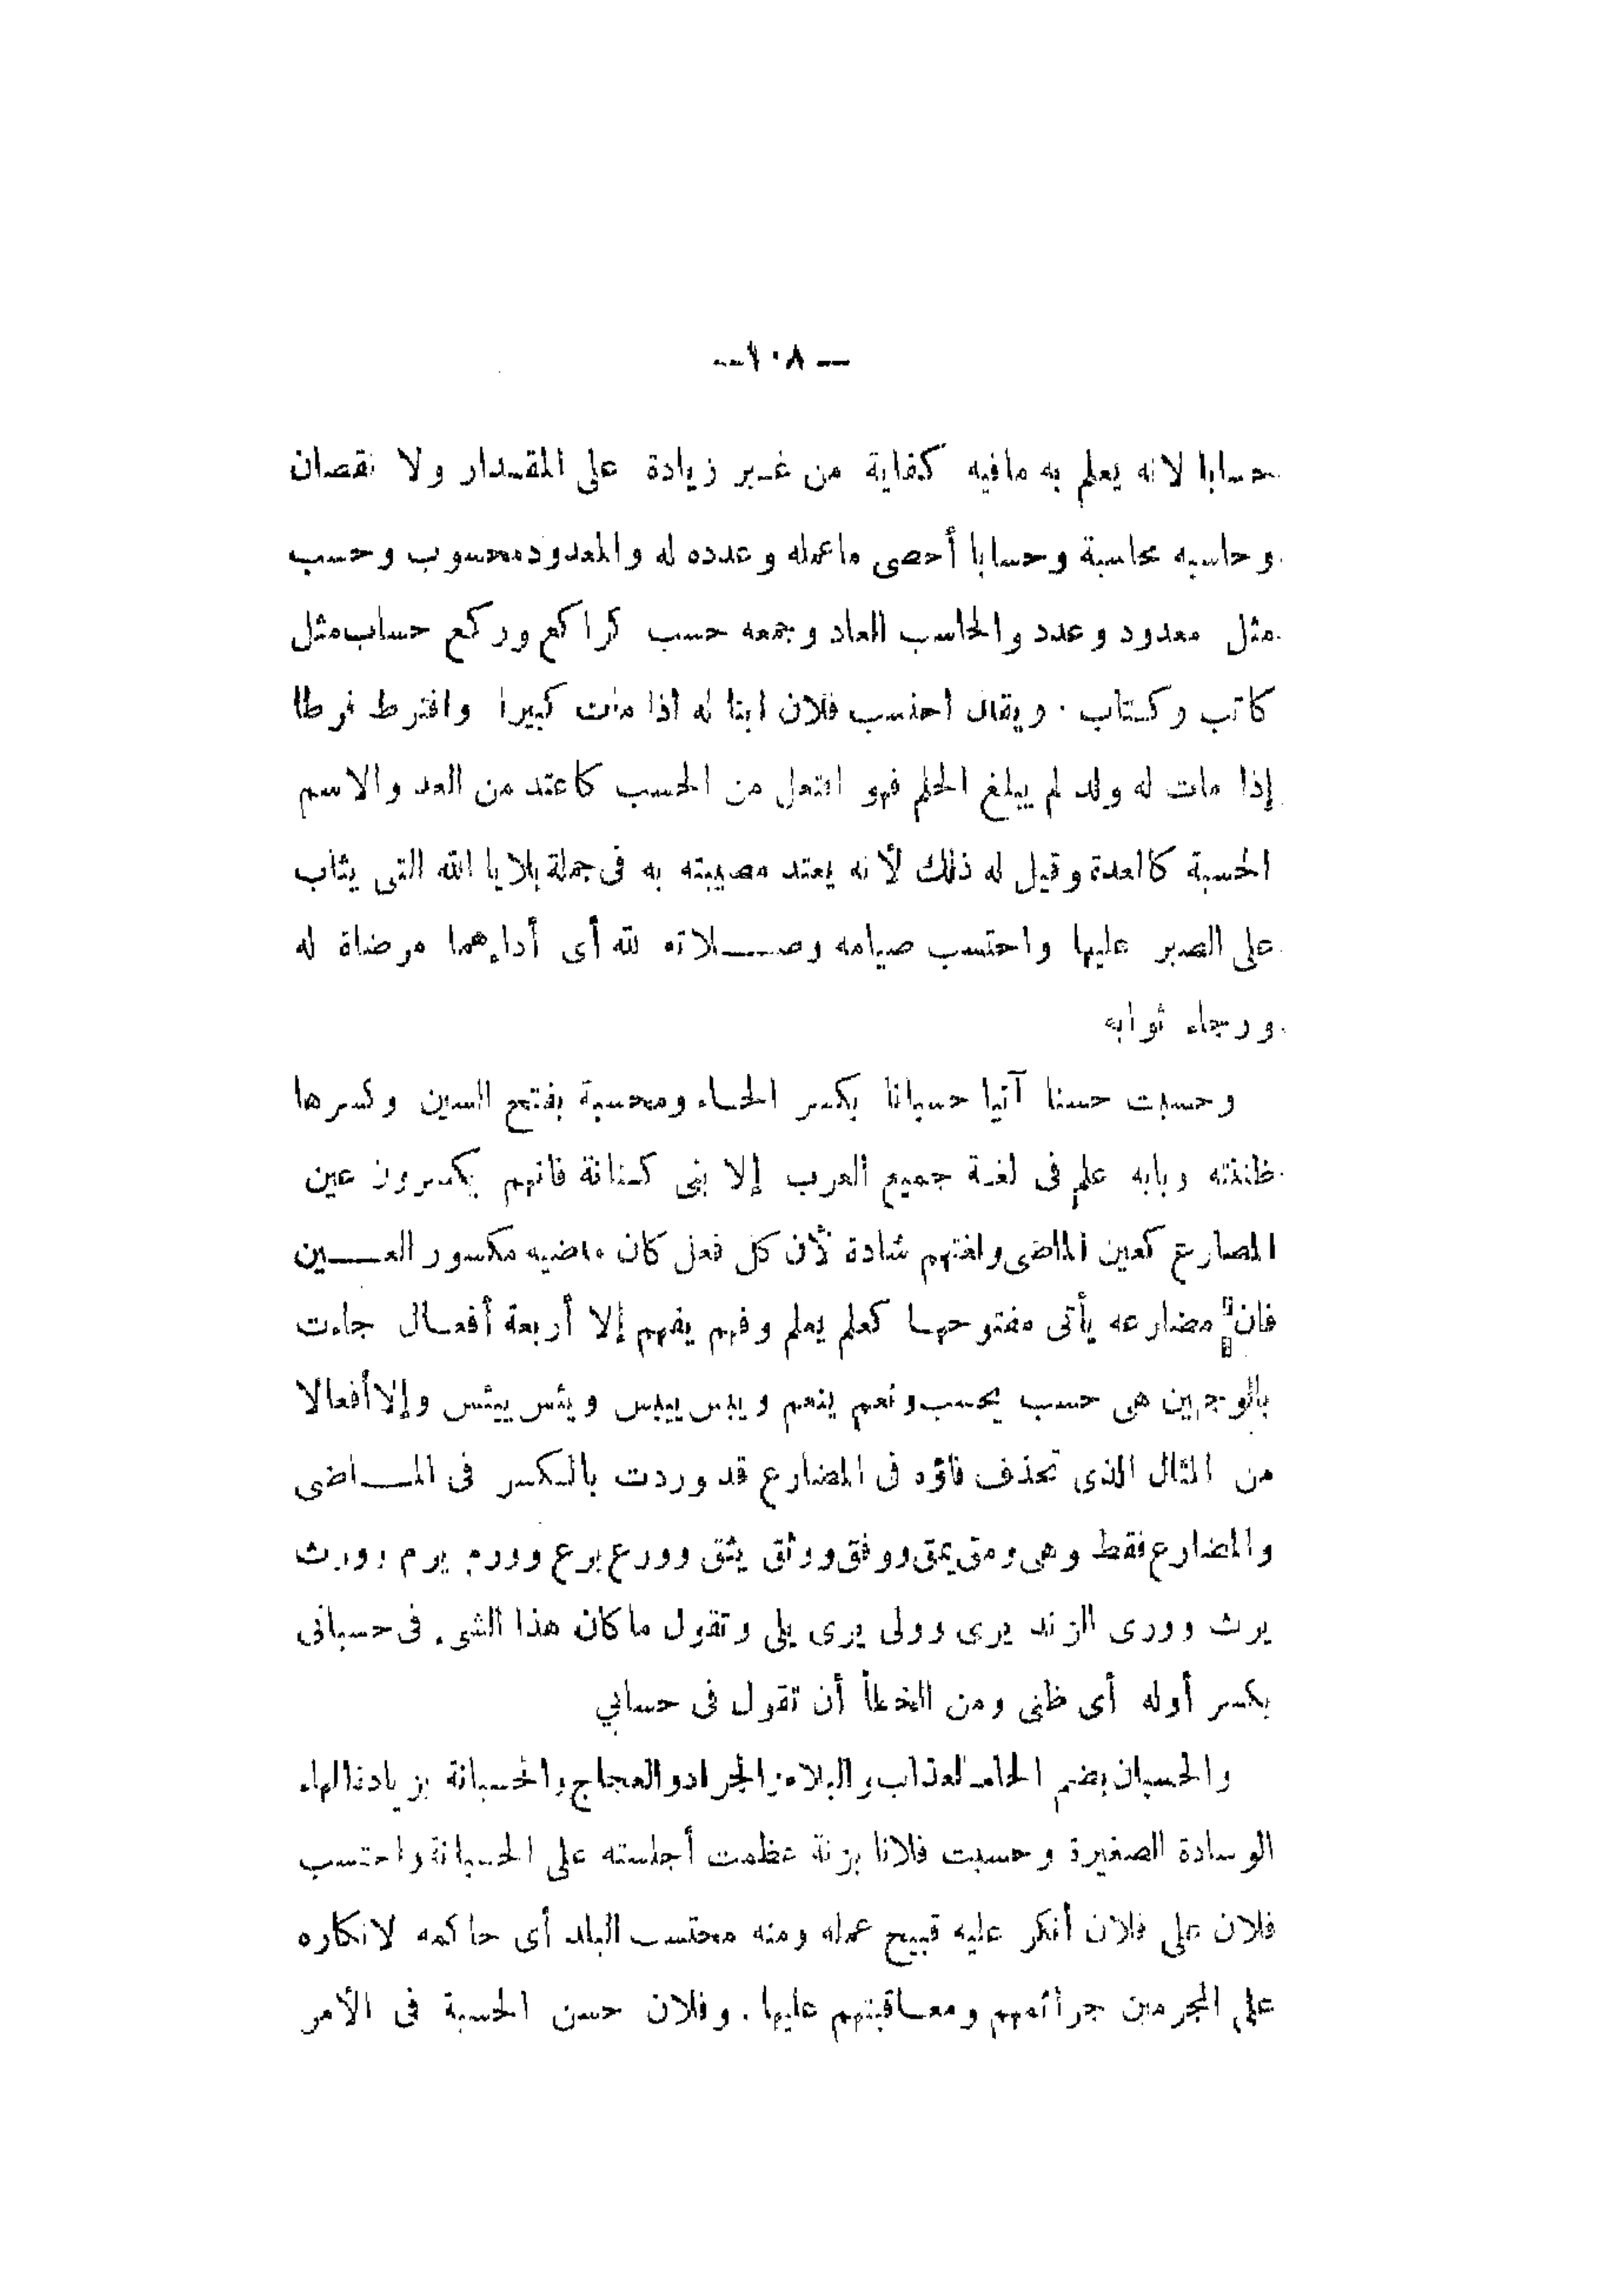 — ١٠٨ —
حسابا لانه يعلم به مافيه كفاية من غير زيادة على المقدار ولا نقصان
وحاسبه محاسبة وحسابا أحصى ماعمله وعدده له والمعدود محسوب وحسب
مثل معدود وعدد والحاسب العاد وجمعه حسب كراكع وركع حساب مثل
كاتب وكتاب . ويقال احتسب فلان ابنا له اذا مات كبيرا وافترط فرطا
إذا مات له ولد لم يبلغ الحلم فهو افتعل من الحسب كاعتد من العد والاسم
الحسبة كالعدة وقيل له ذلك لأنه يعتد مصيبته به فى جملة بلايا الله التى يثاب
على الصبر عليها واحتسب صيامه وصلاته لله أى أداءهما مرضاة له
ورجاء ثوابه
وحسبت حسنا آتيا حسبانا بكسر الحاء ومحسبة بفتح السين وكسرها
ظننته وبابه علم فى لغة جميع العرب إلا بنى كنانة فانهم يكسرون عين
المضارع كعين الماضى ولغتهم شاذة لأن كل فعل كان ماضيه مكسور العين
فان مضارعه يأتى مفتوحها كعلم يعلم وفهم يفهم إلا أربعة أفعال جاءت
بالوجهين هى حسب يحسب ونعم ينعم ويبس ييبس ويئس ييئس وإلا أفعالا
من المثال الذى تحذف فاؤه فى المضارع قد وردت بالكسر فى الماضى
والمضارع فقط وهى ومق يمق ووفق ووثق يثق وورع يرع وورم يرم وورث
يرث وورى الزند يرى وولى يرى يلى وتقول ماكان هذا الشىء فى حسبانى
بكسر أوله أى ظنى ومن الخطأ أن تقول فى حسابي
والحسبان بضم الحاء العذاب والبلاء والجراد والعجاج والحسبانة بزيادة الهاء
الوسادة الصغيرة وحسبت فلانا بزنة عظمت أجلسته على الحسبانة واحتسب
فلان على فلان أنكر عليه قبيح عمله ومنه محتسب البلد أى حاكمه لانكاره
على المجرمين جرائمهم ومعاقبتهم عليها . وفلان حسن الحسبة فى الأمر